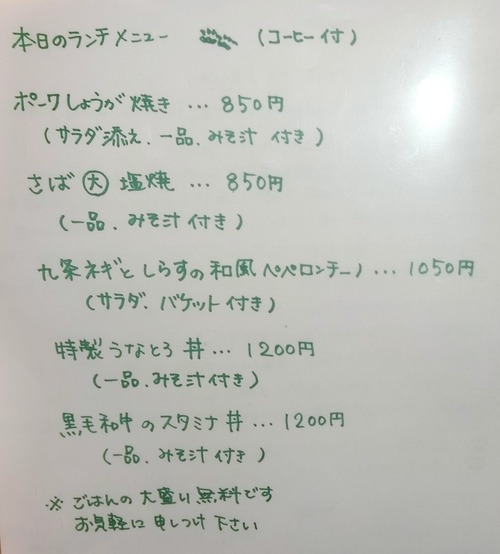 本日のランチメニュー (コーヒー付)
ポークしょうが焼き … 850円
(サラダ添え、一品、みそ汁 付き)
さば㊅塩焼 … 850円
(一品、みそ汁付き)
九条ネギとしらすの和風ペペロンチーノ … 1050円
(サラダ、バケット付き)
特製うなとろ丼 … 1200円
(一品、みそ汁付き)
黒毛和牛のスタミナ丼 … 1200円
(一品、みそ汁付き)
※ ごはんの大盛り無料です
お気軽に申しつけ下さい